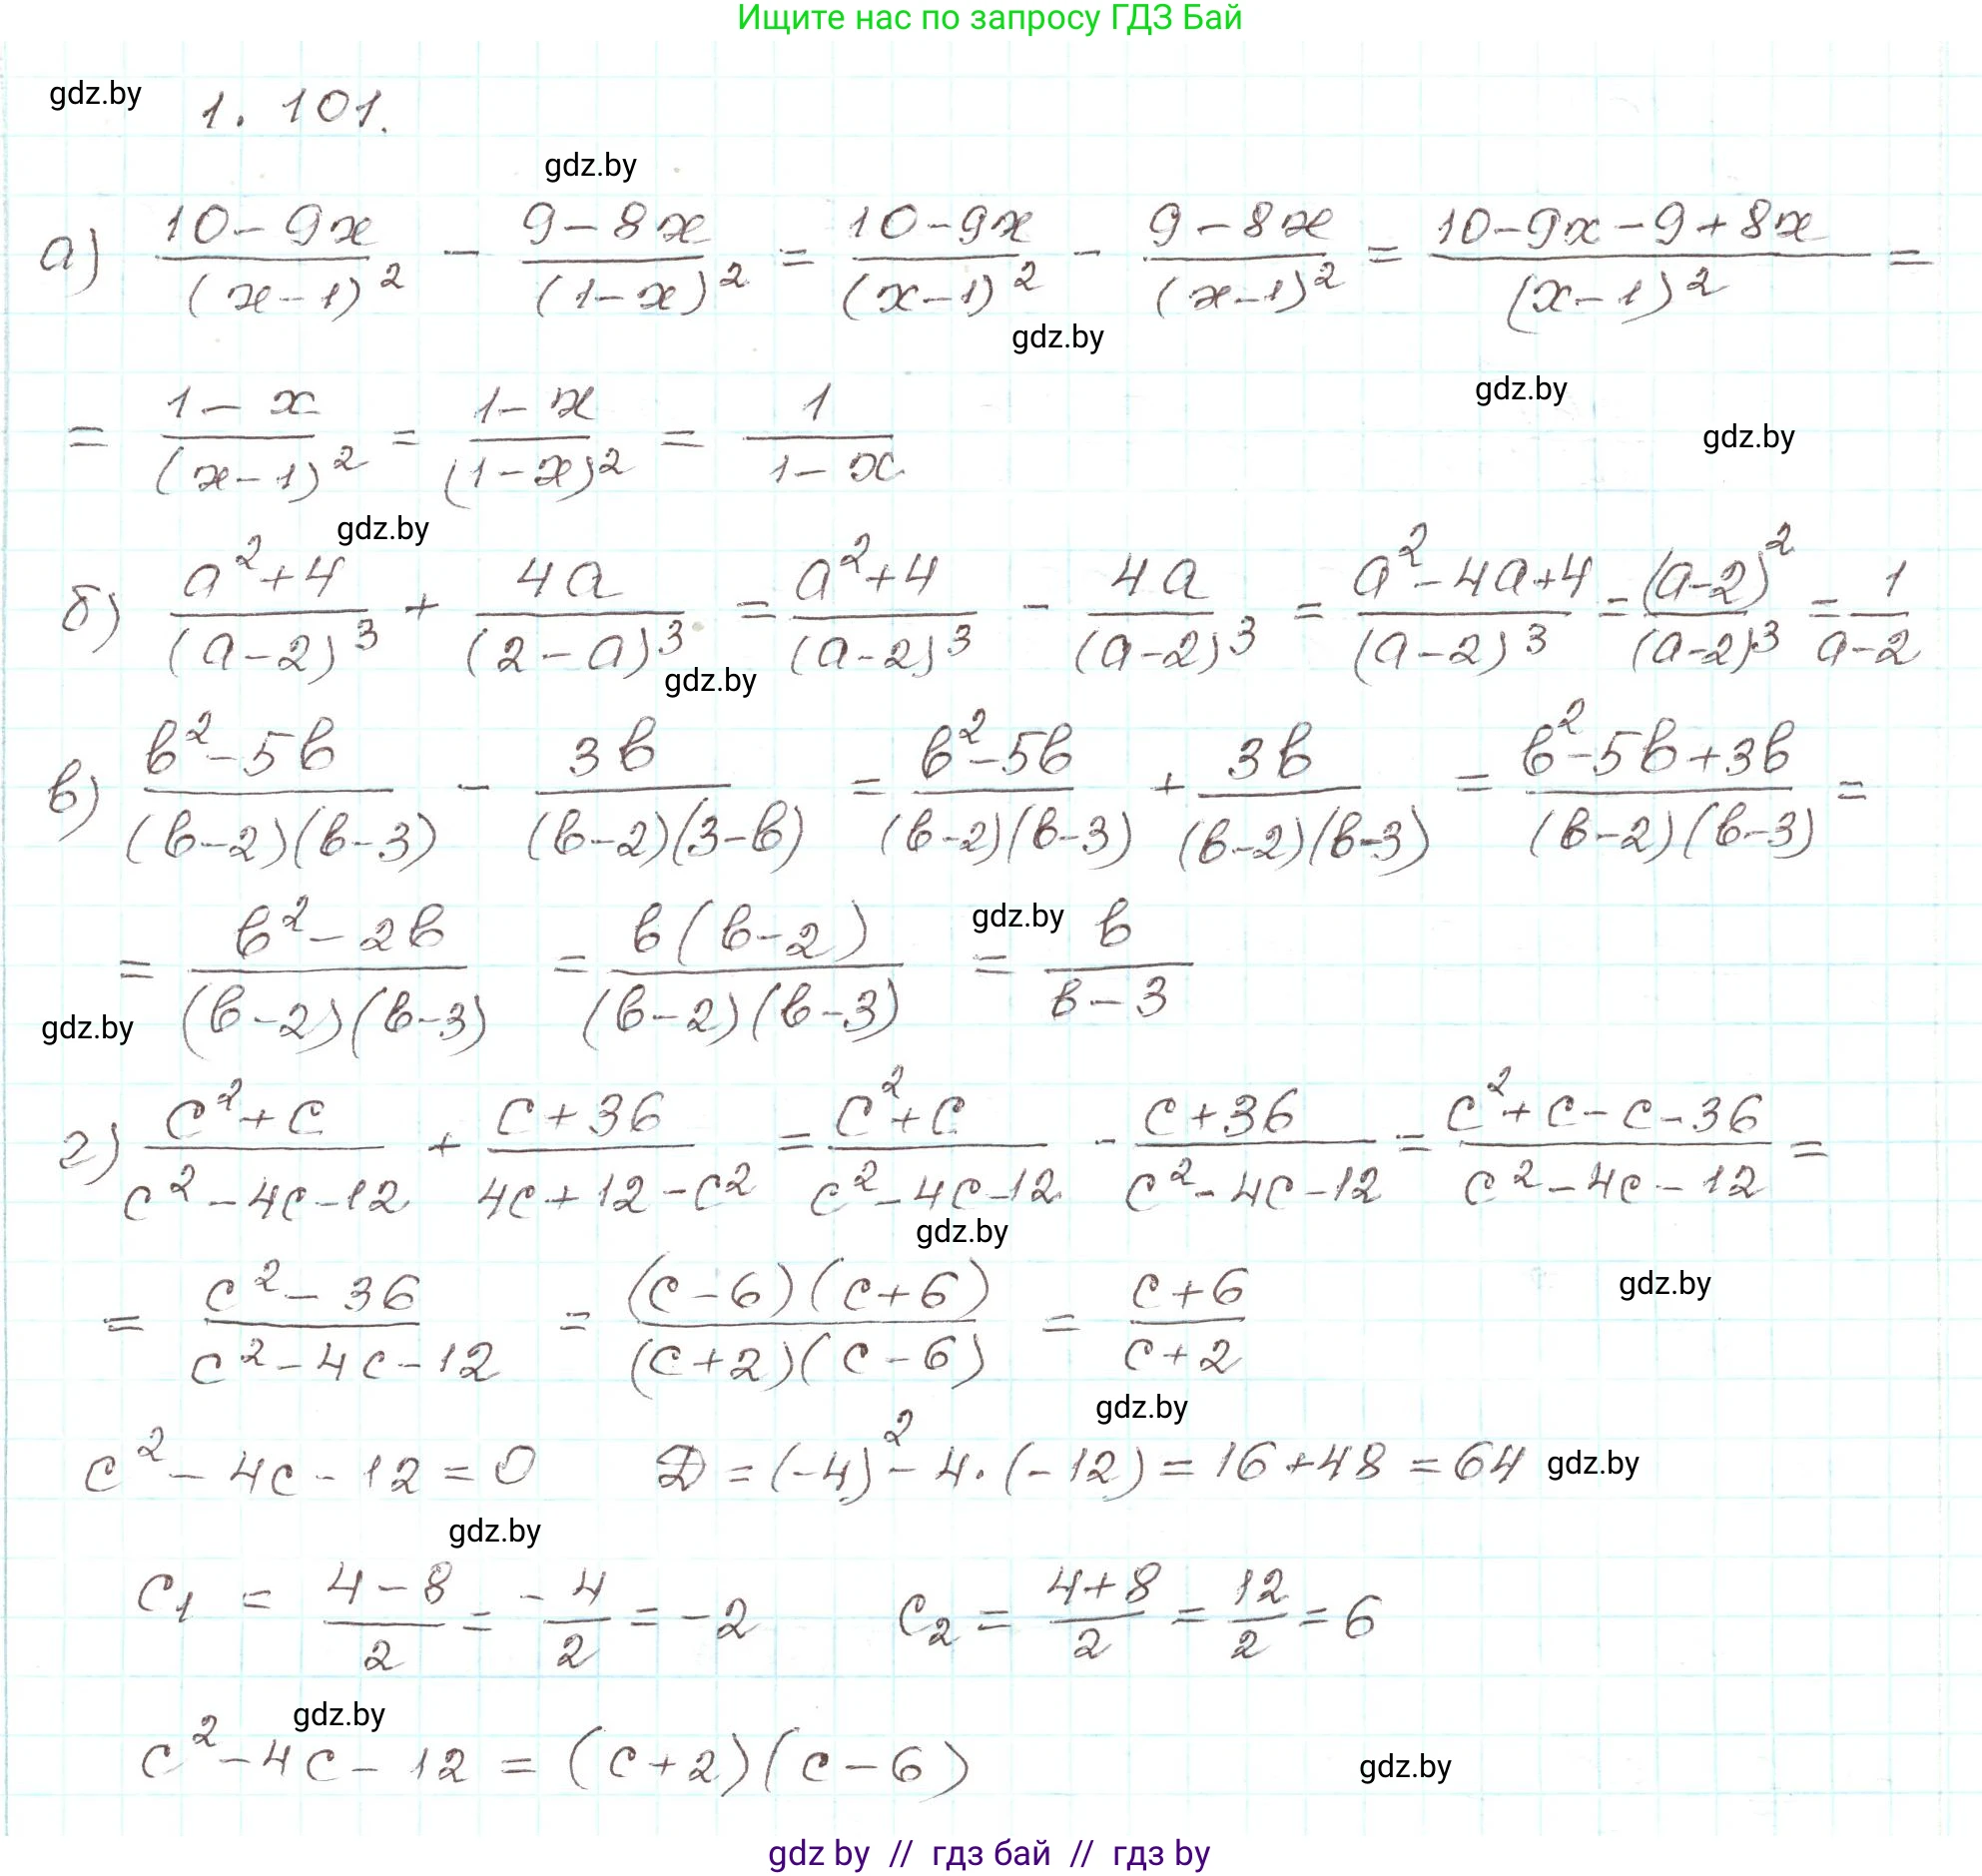 Ищите нас по запросу ГДЗ Бай
gdz.by 1.101.
gdz.by
а) (10-9x)/(x-1)² - (9-8x)/(1-x)² = (10-9x)/(x-1)² - (9-8x)/(x-1)² = (10-9x-9+8x)/(x-1)² =
gdz.by
gdz.by
= (1-x)/(x-1)² = (1-x)/(1-x)² = 1/(1-x)
gdz.by
gdz.by
б) (a²+4)/(a-2)³ + 4a/(2-a)³ = (a²+4)/(a-2)³ - 4a/(a-2)³ = (a²-4a+4)/(a-2)³ = (a-2)²/(a-2)³ = 1/(a-2)
gdz.by
в) (в²-5в)/((в-2)(в-3)) - 3в/((в-2)(3-в)) = (в²-5в)/((в-2)(в-3)) + 3в/((в-2)(в-3)) = (в²-5в+3в)/((в-2)(в-3)) =
gdz.by
= (в²-2в)/((в-2)(в-3)) = в(в-2)/((в-2)(в-3)) = в/(в-3)
gdz.by
г) (c²+c)/(c²-4c-12) + (c+36)/(4c+12-c²) = (c²+c)/(c²-4c-12) - (c+36)/(c²-4c-12) = (c²+c-c-36)/(c²-4c-12) =
gdz.by
gdz.by
= (c²-36)/(c²-4c-12) = (c-6)(c+6)/((c+2)(c-6)) = (c+6)/(c+2)
gdz.by
c²-4c-12=0 D=(-4)²-4·(-12)=16+48=64 gdz.by
gdz.by
c₁ = (4-8)/2 = -4/2 = -2 c₂ = (4+8)/2 = 12/2 = 6
gdz.by
c²-4c-12 = (c+2)(c-6)
gdz.by
gdz by // гдз бай // gdz by